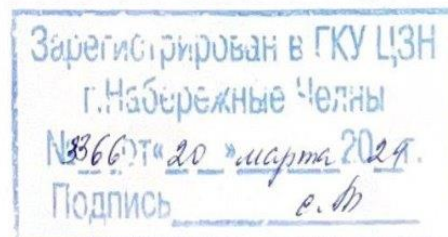 Зарегистрирован в ГКУ ЦЗН
г.Набережные Челны
№3366 от «20 » марта 2024 г.
Подпись